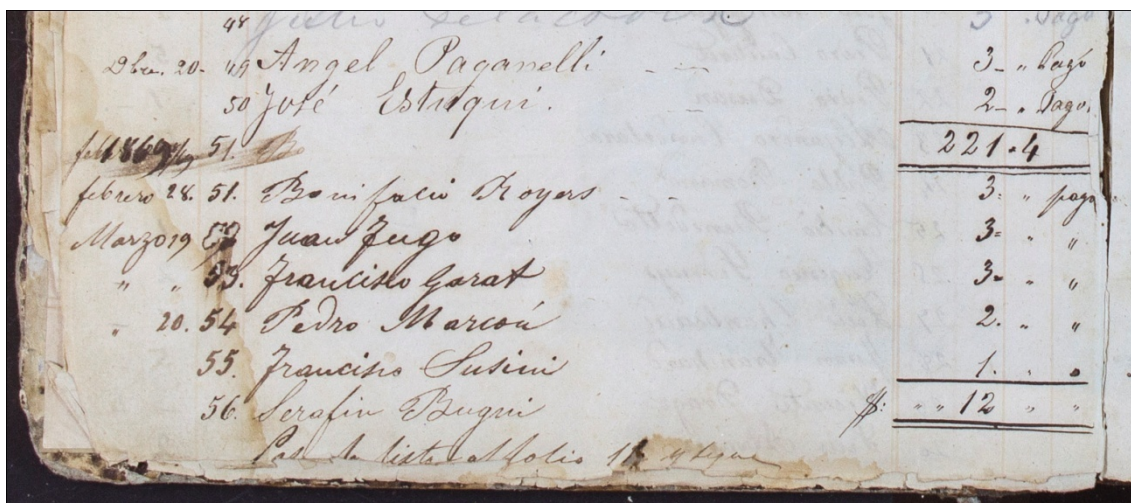 48 3 . Pago
Dbre. 20. 49 Angel Paganelli - - 3 - " Pagó
50 José Estuqui. 2 - " Pago.
51. Bo 221 . 4
febrero 28. 51. Bonifacio Royers - - 3 - " pago
Marzo 19 52 Juan Zugo 3 = " "
" " 53. Francisco Garat 3 - " "
" 20. 54 Pedro Marcoú 2. " "
55. Francisco Susini 1. "
56. Serafin Bugni $: " " 12 " "
Pasa la lista al folio y sigue